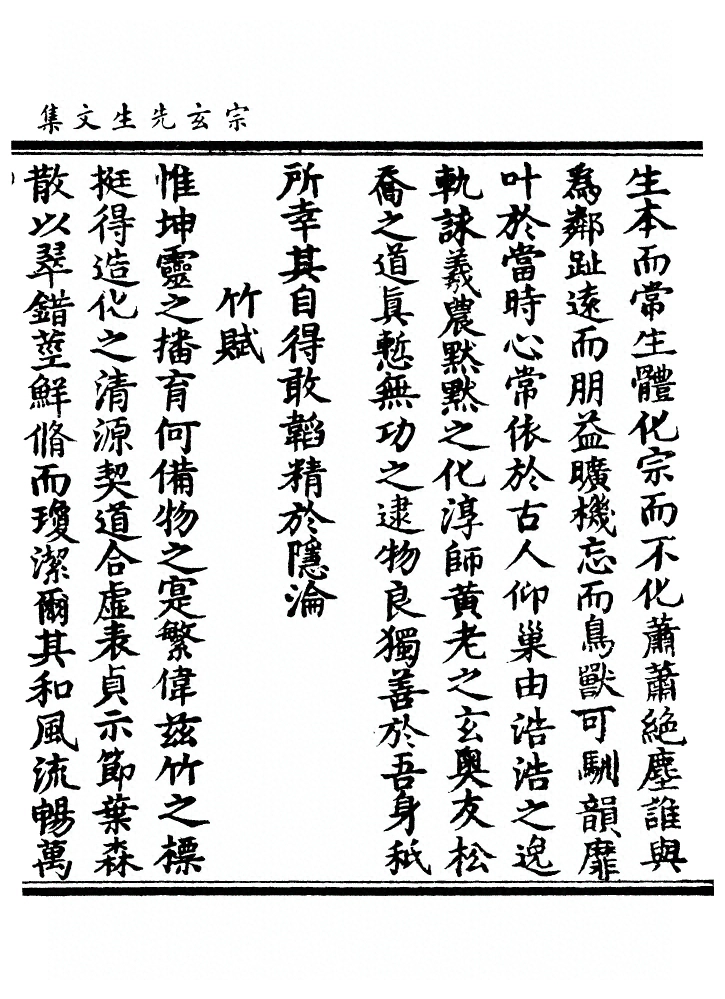 宗玄先生文集
生本而常生體化宗而不化蕭蕭絶塵誰與
為鄰趾遠而朋益曠機忘而鳥獸可馴韻靡
叶於當時心常依於古人仰巢由浩浩之逸
軌誄羲農默默之化淳師黃老之玄奧友松
喬之道真慙無功之逮物良獨善於吾身秖
所幸其自得敢韜精於隱淪
竹賦
惟坤靈之播育何備物之寔繁偉兹竹之標
挺得造化之清源契道合虛表貞示節葉森
散以翠錯莖鮮脩而瓊潔爾其和風流暢萬